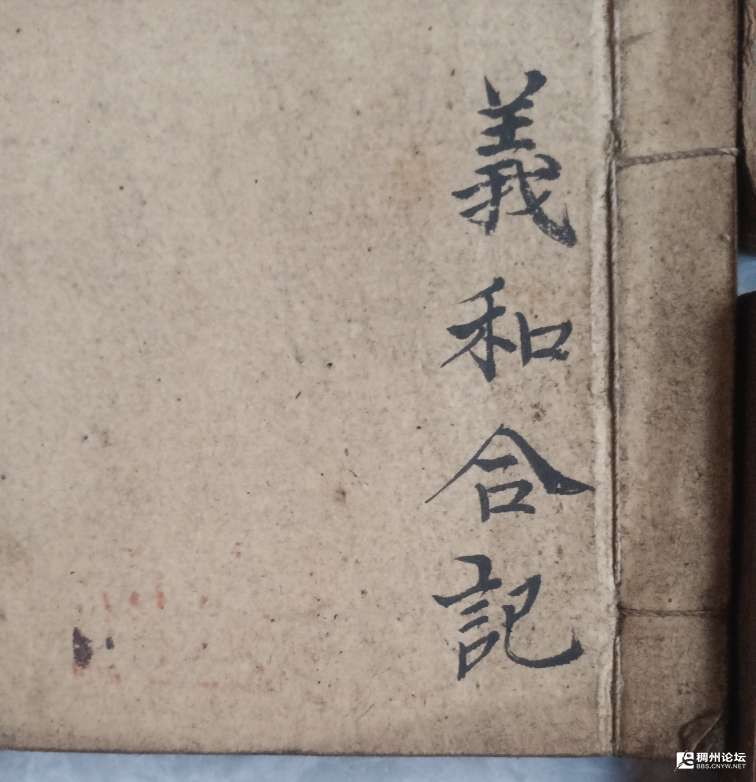 義和合記
稠州论坛
BBS.CNYW.NET